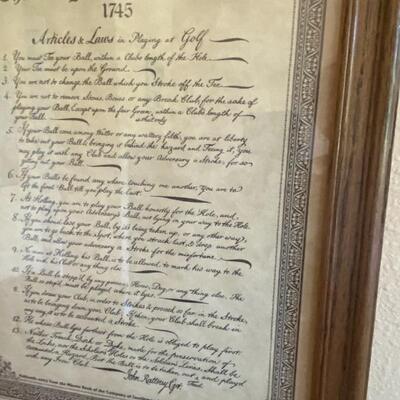 1745
Articles & Laws in Playing at Golf
1. You must Tee your Ball, within a Clubs length of the Hole.
2. Your Tee must be upon the Ground.
3. You are not to change the Ball which you Stroke off the Tee.
4. You are not to remove Stones, Bones or any Break Club, for the sake of
playing your Ball, Except upon the fair Green, within a Clubs length of
your Ball.
5. If your Ball come among Watter or any wattery filth, you are at liberty
to take out your Ball & bringing it behind the hazard and Teeing it, you
may play it with any Club and allow your Adversary a Stroke, for so
getting out your Ball.
6. If your Balls be found any where touching one another, You are to
lift the first Ball till you play the last.
7. At Holling, you are to play your Ball honestly for the Hole, and
not to play upon your Adversary's Ball, not lying in your way to the Hole.
8. If you should lose your Ball, by its being taken up, or any other way,
you are to go back to the Spot, where you struck last, & drop another
Ball, and allow your adversary a Stroke for the misfortune.
9. No man at Holling his Ball, is to be allowed, to mark his way to the
Hole with his Club or any thing else.
10. If a Ball be stop'd by any person, Horse, Dog, or any thing else, The
Ball so stop'd must be played where it lyes.
11. If you draw your Club, in order to Strike & proceed so far in the Stroke,
as to be bringing down your Club; if then, your Club shall break in
any way, it is to be accounted a Stroke.
12. He whose Ball lyes farthest from the Hole is obliged to play first.
13. Neither Trench, Ditch or Dyke, made for the preservation of
the Links, nor the Scholars Holes or the Soldiers Lines, Shall be
accounted a Hazard, But the Ball is to be taken out, and played
with any Iron Club.
John Rattray Cpt.